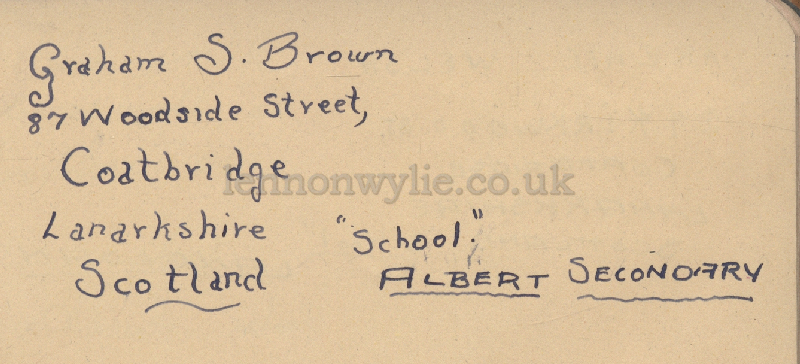 Graham S. Brown
87 Woodside Street,
Coatbridge
lennonwylie.co.uk
Lanarkshire "School."
Scotland ALBERT SECONDARY